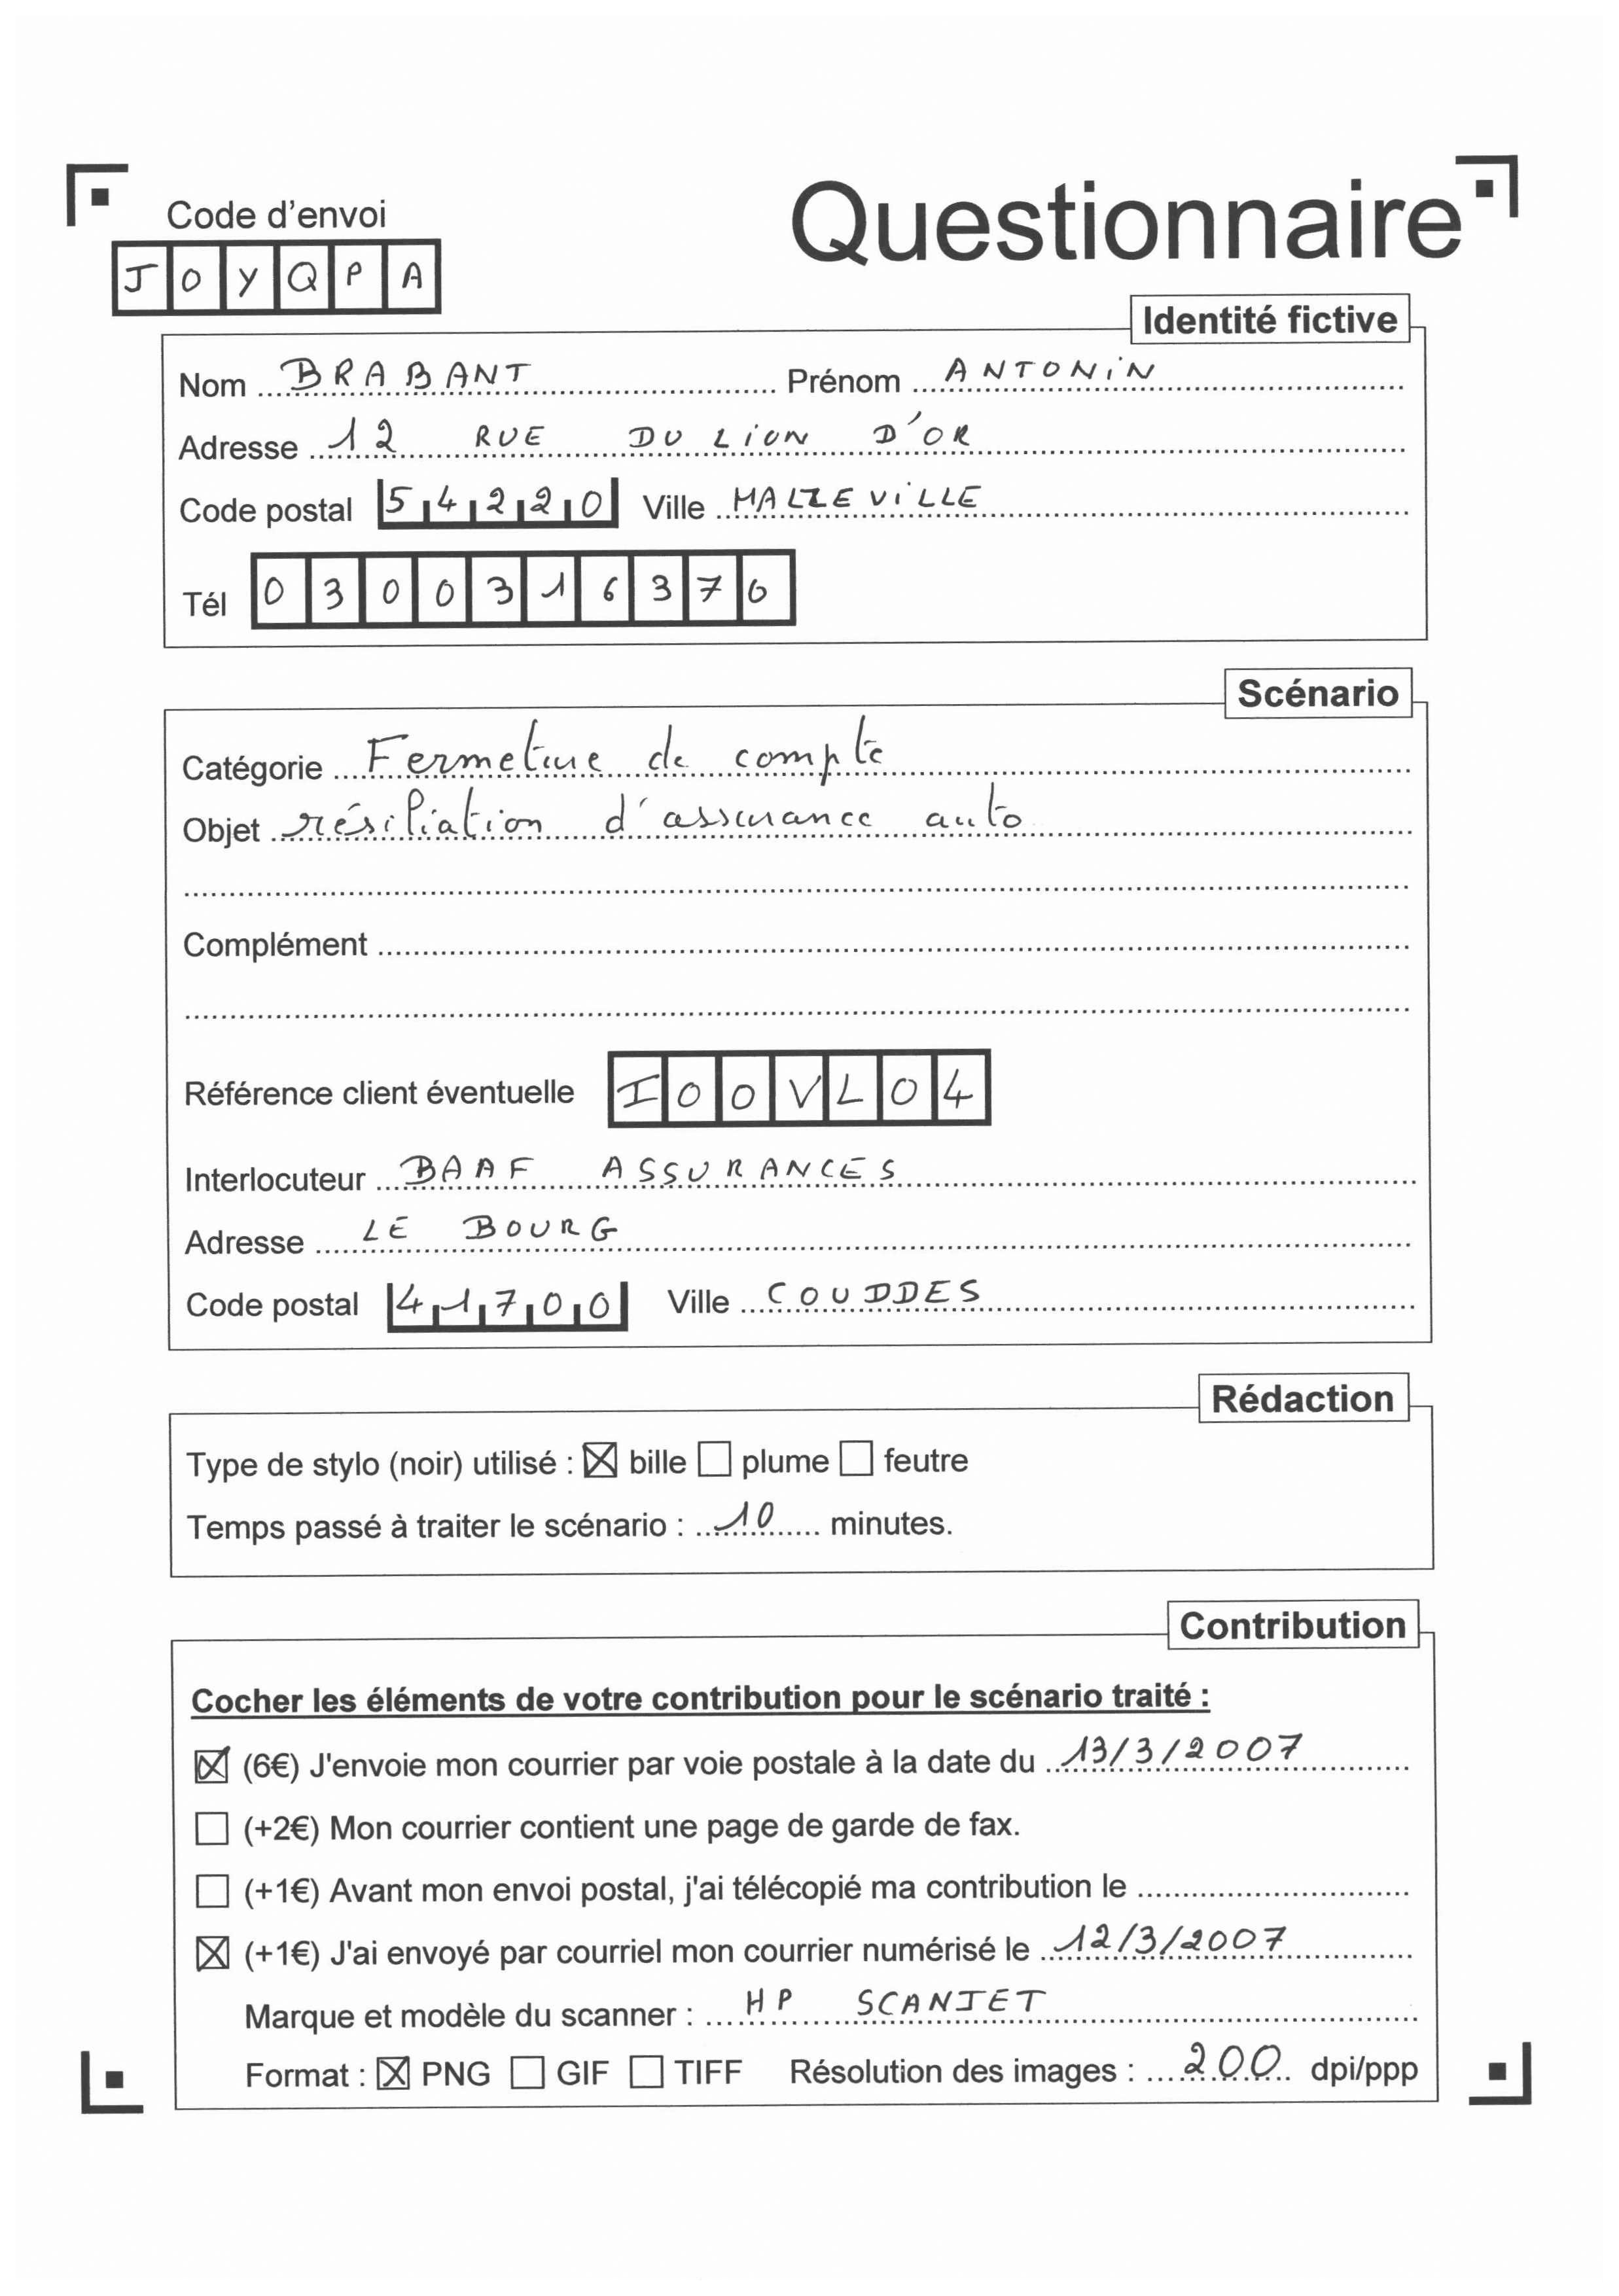 Questionnaire
Code d'envoi
JOYQPA
Identité fictive
Nom BRABANT Prénom ANTONIN
Adresse 12 RUE DU LION D'OR
Code postal 54220 Ville MALZEVILLE
Tél 0300316376
Scénario
Catégorie Fermeture de compte
Objet résiliation d'assurance auto
Complément
Référence client éventuelle IOOVL04
Interlocuteur BAAF ASSURANCES
Adresse LE BOURG
Code postal 41700 Ville COUDDES
Rédaction
Type de stylo (noir) utilisé : ☒ bille ☐ plume ☐ feutre
Temps passé à traiter le scénario : 10 minutes.
Contribution
Cocher les éléments de votre contribution pour le scénario traité :
☒ (6€) J'envoie mon courrier par voie postale à la date du 13/3/2007
☐ (+2€) Mon courrier contient une page de garde de fax.
☐ (+1€) Avant mon envoi postal, j'ai télécopié ma contribution le
☒ (+1€) J'ai envoyé par courriel mon courrier numérisé le 12/3/2007
Marque et modèle du scanner : HP SCANJET
Format : ☒ PNG ☐ GIF ☐ TIFF Résolution des images : 200 dpi/ppp